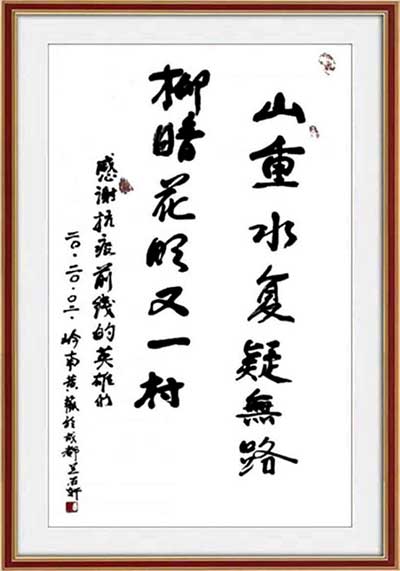 山重水复疑無路
柳暗花明又一村
感谢抗疫前线的英雄们
二〇·二〇·〇三·岭南黄於成都石轩